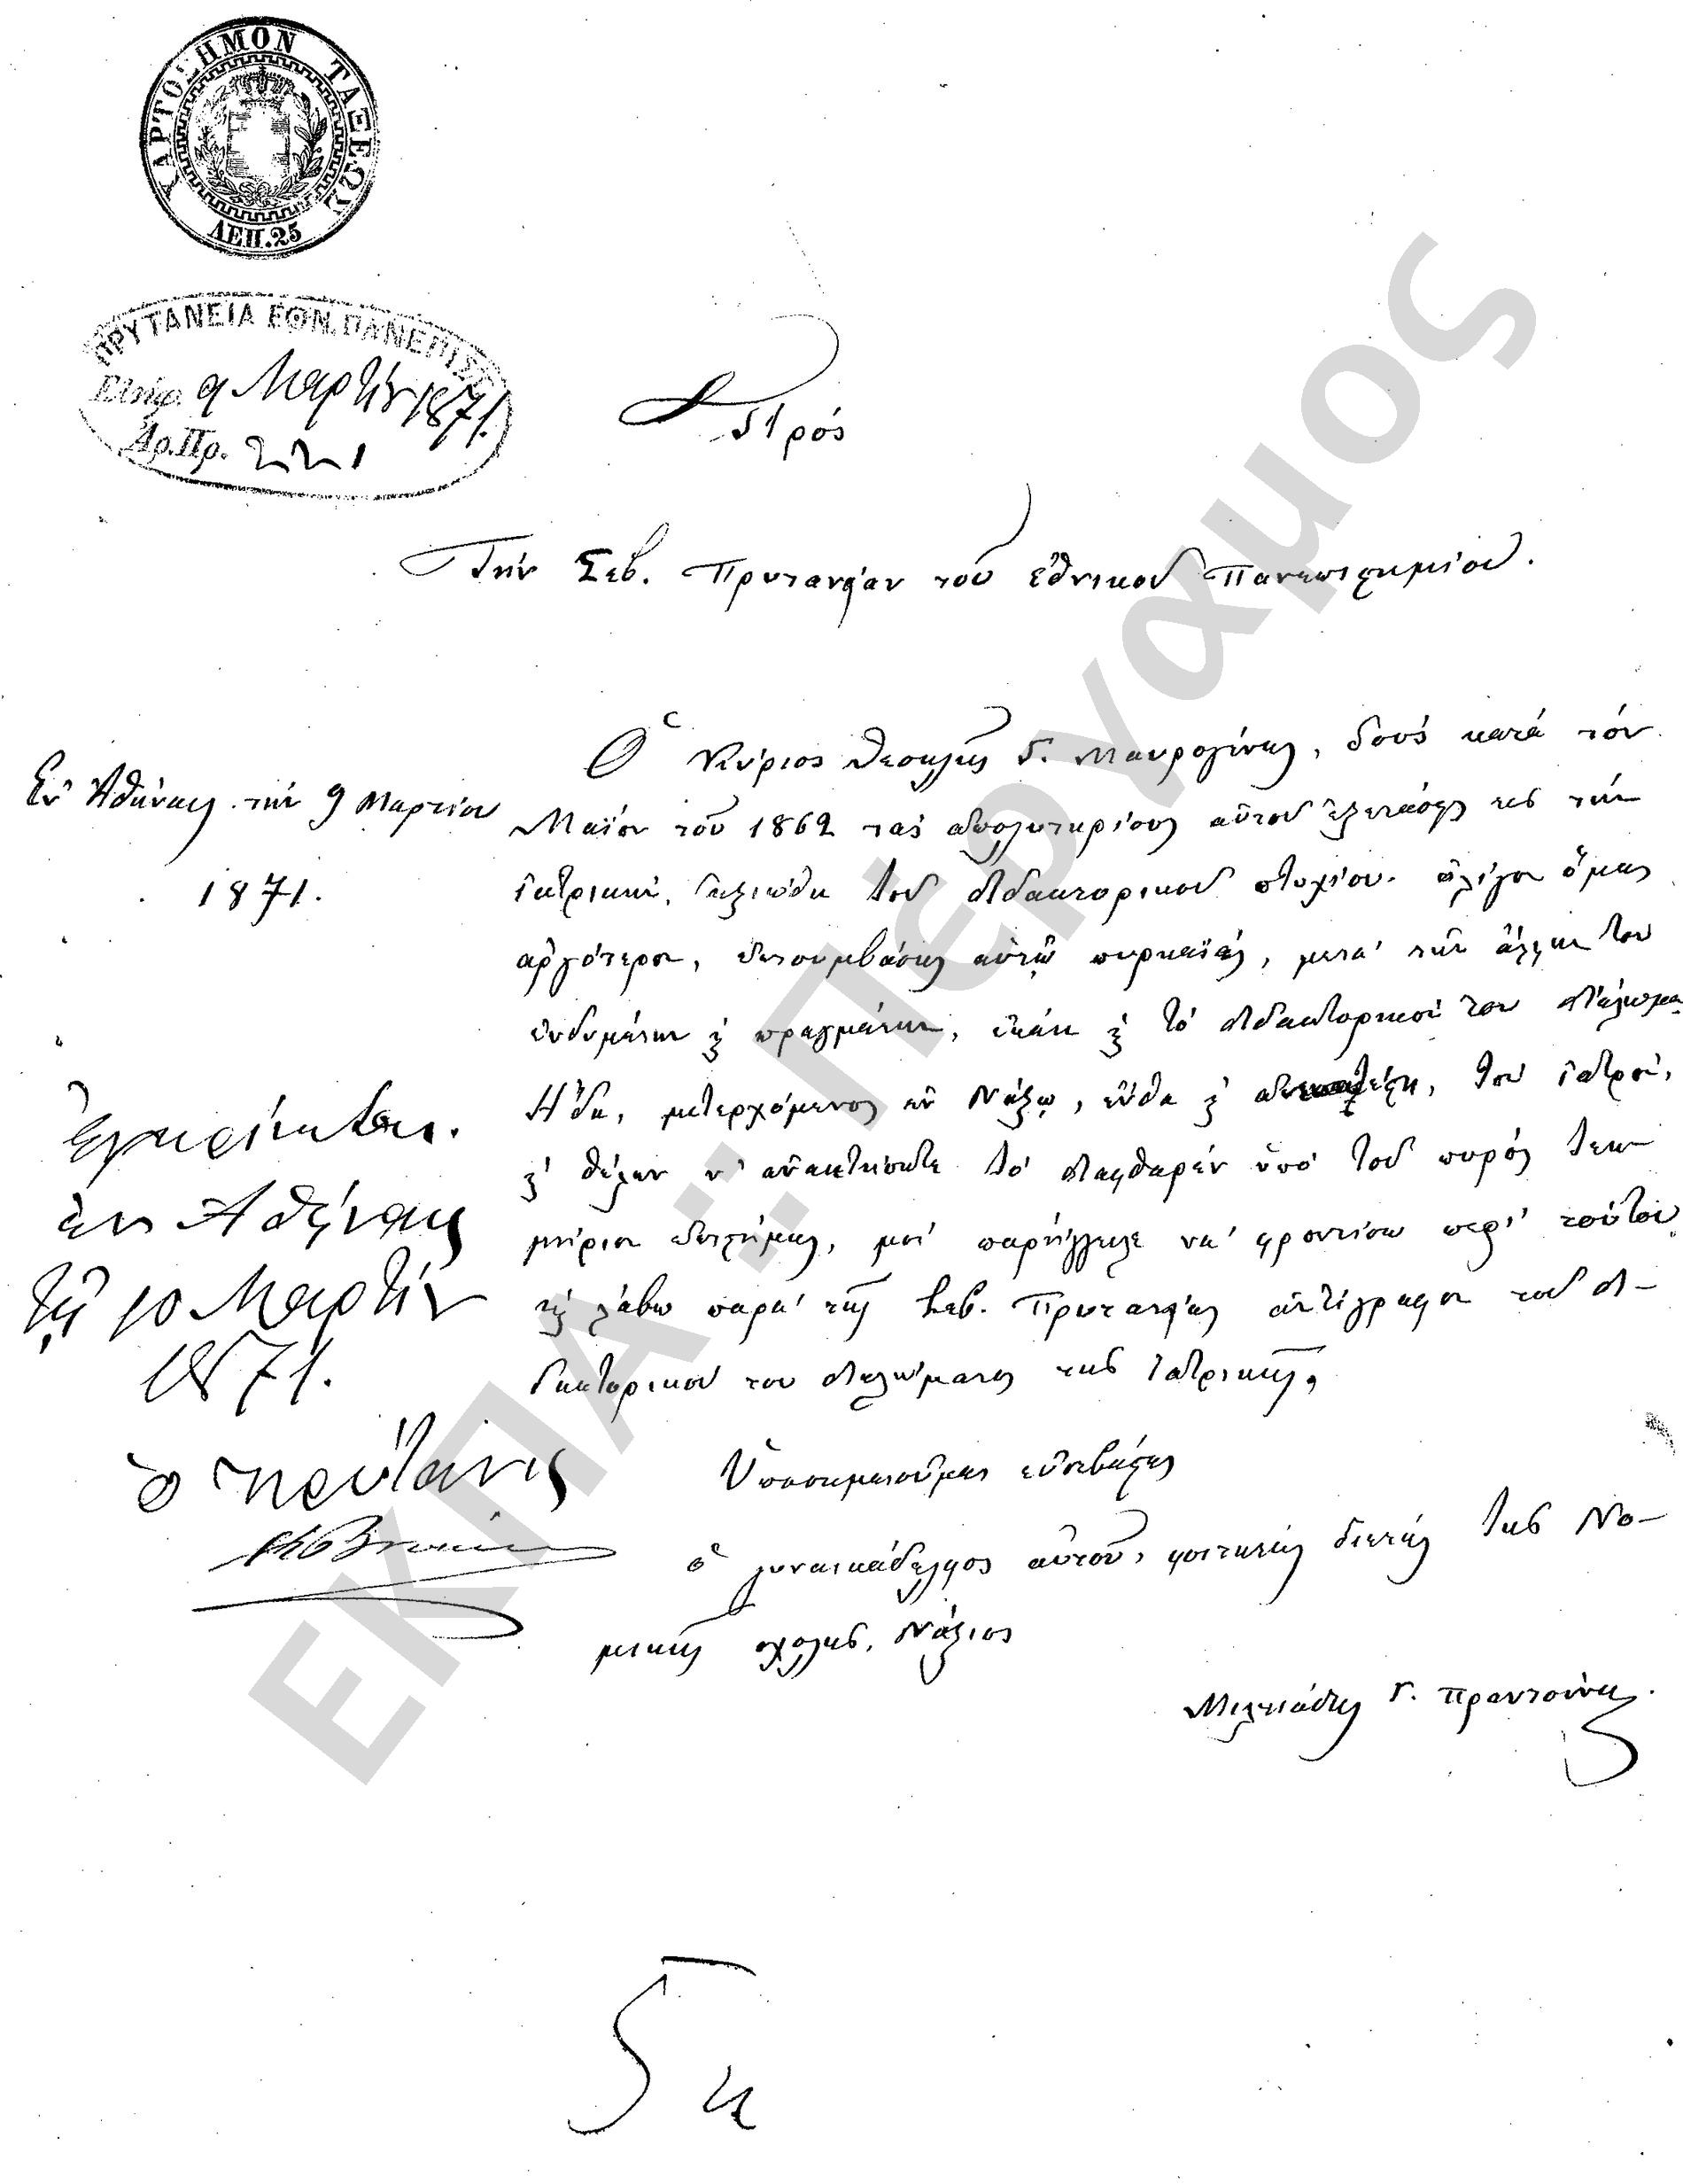 ΧΑΡΤΟΣΗΜΟΝ ΤΑΞΕΩΣ
ΛΕΠ. 25
ΠΡΥΤΑΝΕΙΑ ΕΘΝ. ΠΑΝΕΠΙΣ
Εἰσήχ. 9 Μαρτίου 1871.
Ἀρ. Πρ. 221
Πρός
Τήν Σεβ. Πρυτανείαν τοῦ ἐθνικοῦ Πανεπιστημίου.
Ἐν Ἀθήναις τήν 9 Μαρτίου
1871.
Ὁ Κύριος Θεοκλῆς Γ. Μαυρογένης, δούς κατά τόν
Μαϊον τοῦ 1862 τάς ἀπολυτηρίους αὐτοῦ ἐξετάσεις εἰς τήν
ἰατρικήν, ἠξιώθη τοῦ διδακτορικοῦ πτυχίου. ὀλίγον ὅμως
ἀργότερον, ἐπισυμβάσης αὐτῷ πυρκαϊᾶς, μετά τῶν ἄλλων του
ἐνδυμάτων καί πραγμάτων, ἐκάη καί τό διδακτορικόν του δίπλωμα.
Ἤδη, μετερχόμενος ἐν Νάξῳ, ἔνθα καί, τόν ἰατρόν,
καί θέλων ν' ἀνακτήσηται τό διαφθαρέν ὑπό τοῦ πυρός τεκ-
μήριον ἐπιστήμης, μοί παρήγγειλε νά φροντίσω περί τούτου
καί λάβω παρά τῆς Σεβ. Πρυτανείας ἀντίγραφον τοῦ δι-
δακτορικοῦ του διπλώματος τῆς ἰατρικῆς.
Ὑποσημειοῦμαι εὐσεβάστως
ὁ γυναικάδελφος αὐτοῦ, φοιτητής διετής τῆς Νο-
μικῆς σχολῆς, Νάξιος
Μιλτιάδης Γ. Πραντούνας.
Ἐγκρίνεται.
ἐν Ἀθήναις
τῇ 10 Μαρτίου
1871.
ὁ πρύτανις
ΕΚΠΑ :: Πέργαμος